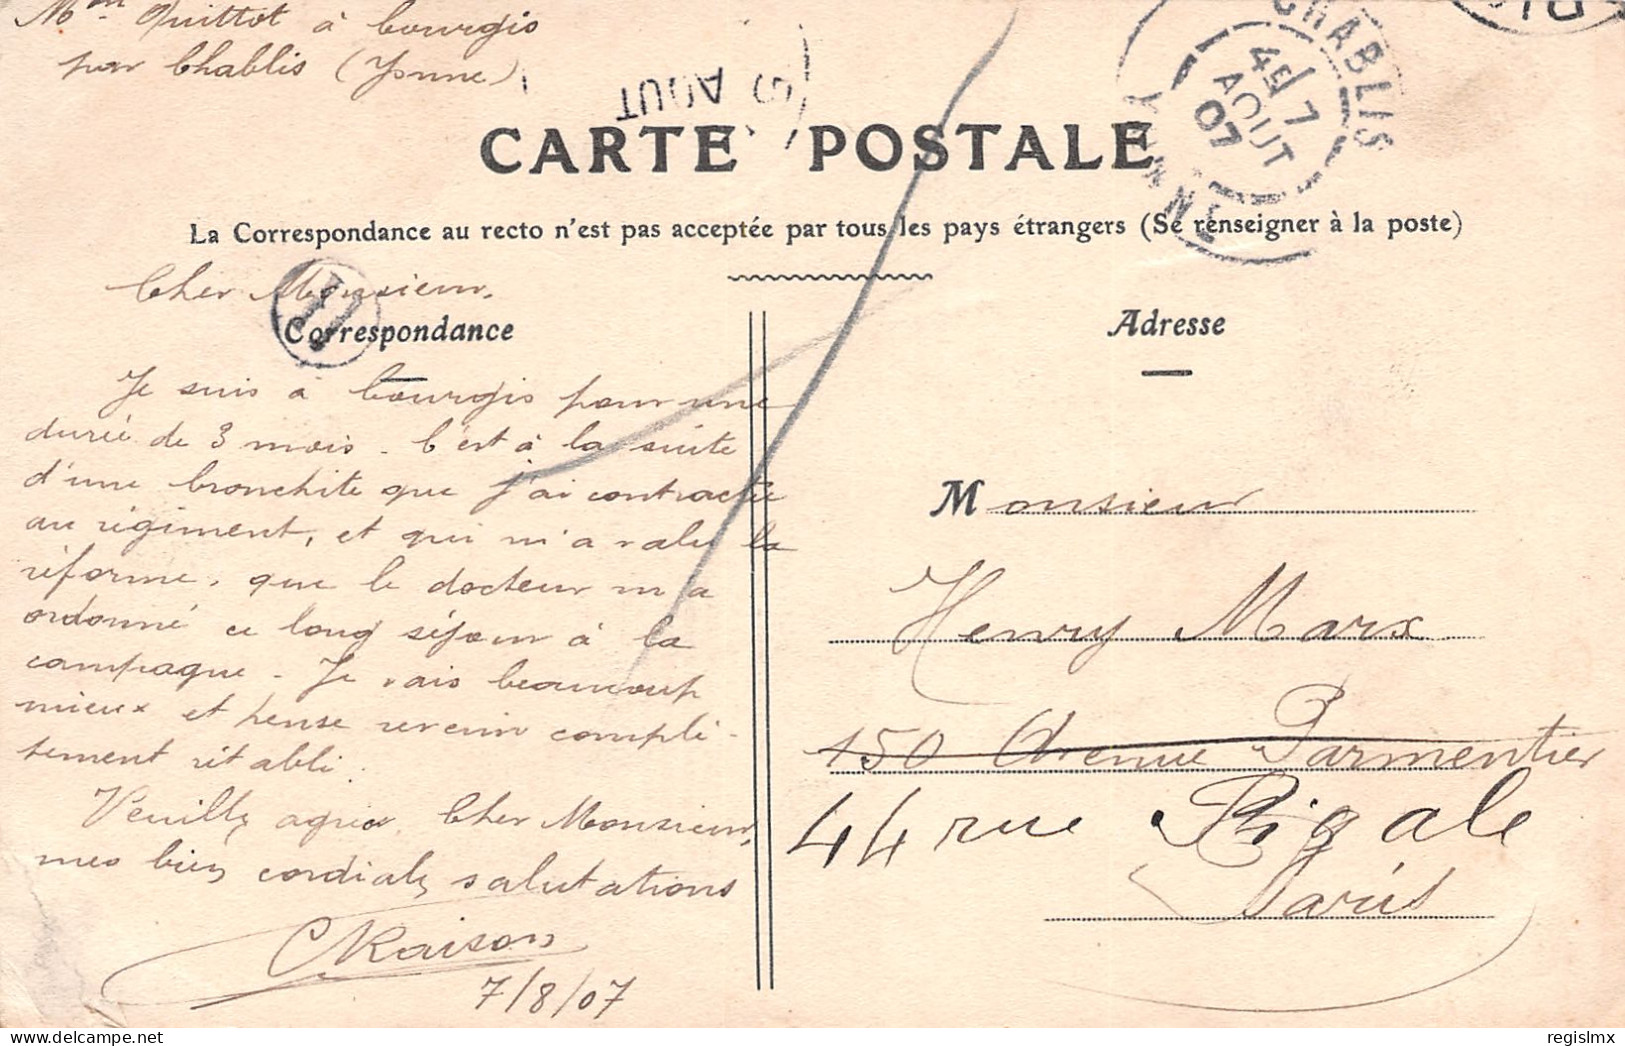 Mon Quittot à Courgis
par Chablis (Yonne)
AOUT
CHABLIS
4E/7
AOUT
07
YONNE
CARTE POSTALE
La Correspondance au recto n'est pas acceptée par tous les pays étrangers (Se renseigner à la poste)
Cher Monsieur,
Correspondance
Adresse
Je suis à Courgis pour une
durée de 3 mois. C'est à la suite
d'une bronchite que j'ai contractée
au régiment, et qui m'a valu la
réforme, que le docteur m'a
ordonné ce long séjour à la
campagne. Je vais beaucoup
mieux et pense revenir complè-
tement rétabli.
Veuillez agréer, Cher Monsieur,
mes bien cordiales salutations
CRaison
7/8/07
Monsieur
Henry Marx
150 Avenue Parmentier
44 rue Pigale
Paris
delcampe.net
regislmx